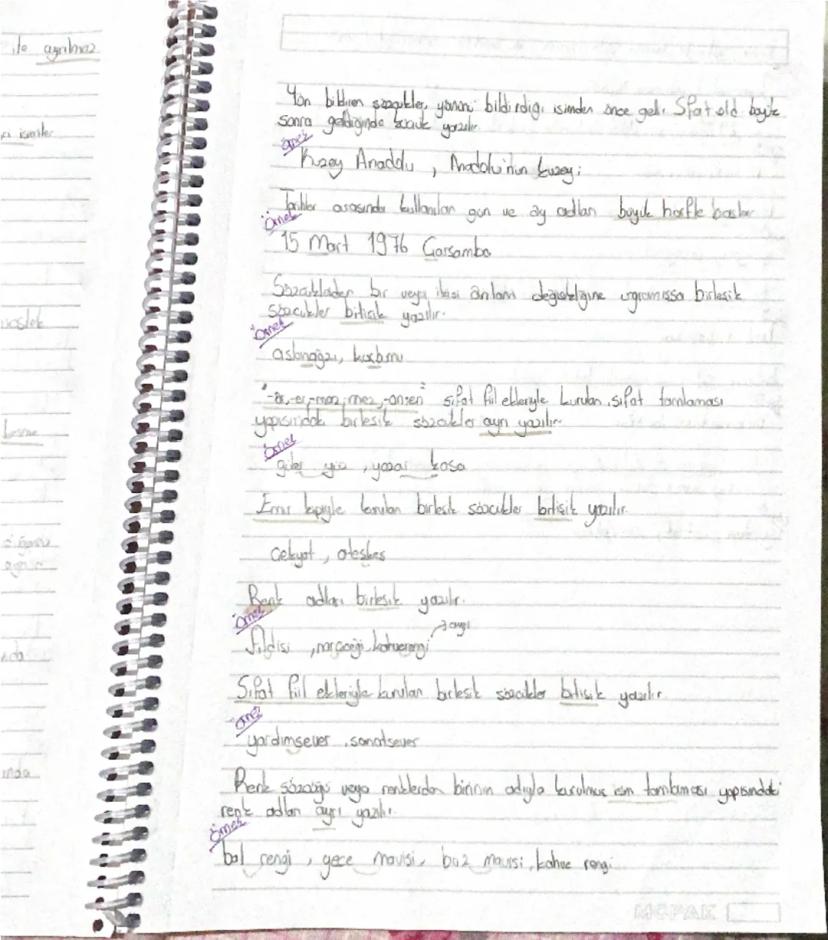 ile ayrılmaz
Yön bildiren sözcükler, yönünü bildirdiği isimden önce gelir. Sıfat old büyük
sonra geldiğinde küçük yazılır.
örnek
Kuzey Anadolu, Anadolu'nun kuzeyi
Tarihler arasında kullanılan gün ve ay adları büyük harfle başlar
örnek
15 Mart 1976 Çarşamba
Sözcüklerden bir veya ikisi anlam değişikliğine uğramışsa birleşik
sözcükler bitişik yazılır.
örnek
aslanağzı, kuşburnu
"-ar,-er,-maz,-mez,-an,-en" sıfat fiil ekleriyle kurulan, sıfat tamlaması
yapısındaki birleşik sözcükler ayrı yazılır.
örnek
güler yüz, yazar kasa
Emir kipiyle kurulan birleşik sözcükler bitişik yazılır.
çekyat, ateşkes
Renk adları birleşik yazılır.
örnek
fildişi, narçiçeği, kahverengi
ayrı
Sıfat fiil ekleriyle kurulan birleşik sözcükler bitişik yazılır
örnek
yardımsever, sanatsever
Renk sözcüğü veya renklerden birinin adıyla kurulmuş isim tamlaması yapısındaki
renk adları ayrı yazılır.
örnek
bal rengi, gece mavisi, buz mavisi, kahve rengi
MOPAK